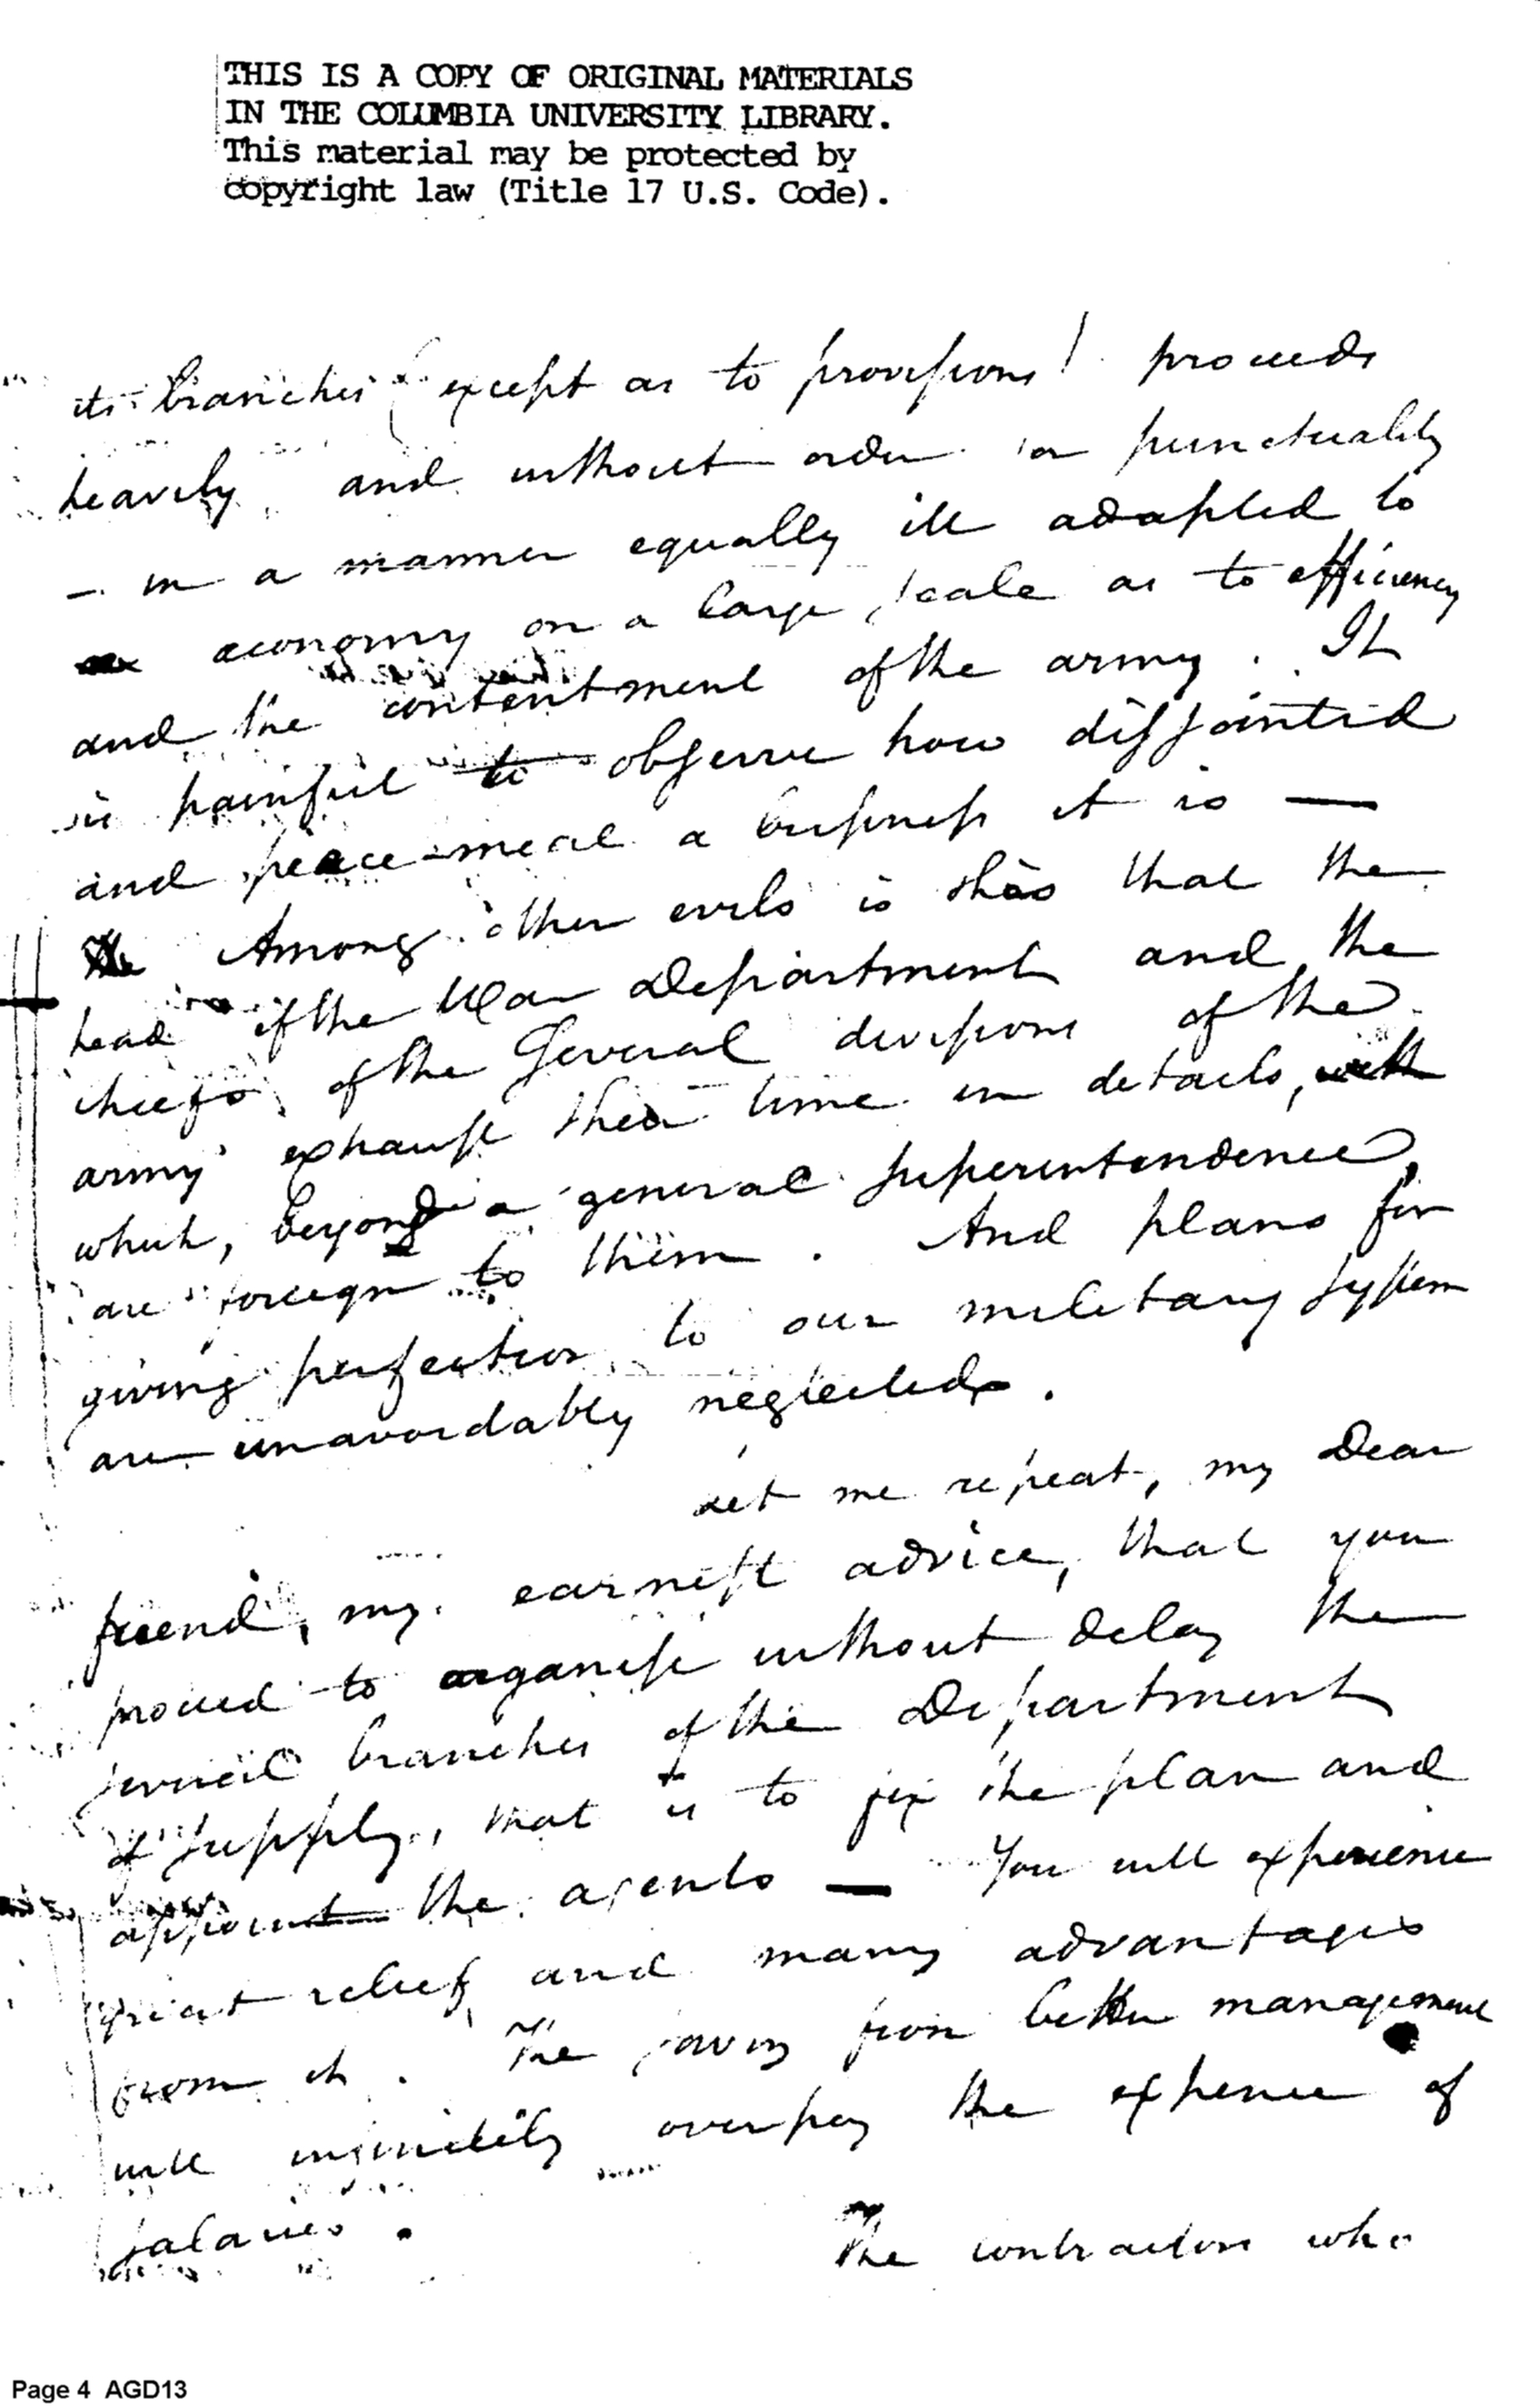 THIS IS A COPY OF ORIGINAL MATERIALS
IN THE COLUMBIA UNIVERSITY LIBRARY.
This material may be protected by
copyright law (Title 17 U.S. Code).
its branches (except as to provisions) proceeds
heavily and without order or punctuality
— in a manner equally ill adapted to
economy on a large scale as to efficiency
and the contentment of the army. It
is painful to observe how disjointed
and peace-meal a business it is —
Among other evils is this that the
head of the War Department and the
chiefs of the several divisions of the
army exhaust their time in details,
which, beyond a general superintendence,
are foreign to them. And plans for
giving perfection to our military system
are unavoidably neglected.
Let me repeat, my Dear
friend, my earnest advice, that you
proceed to organise without delay the
several branches of the Department
of supply, that is to fix the plan and
appoint the agents — You will experience
great relief and many advantages
from it. The saving from better management
will infinitely overpay the expence of
salaries.
The contractors who
Page 4 AGD13